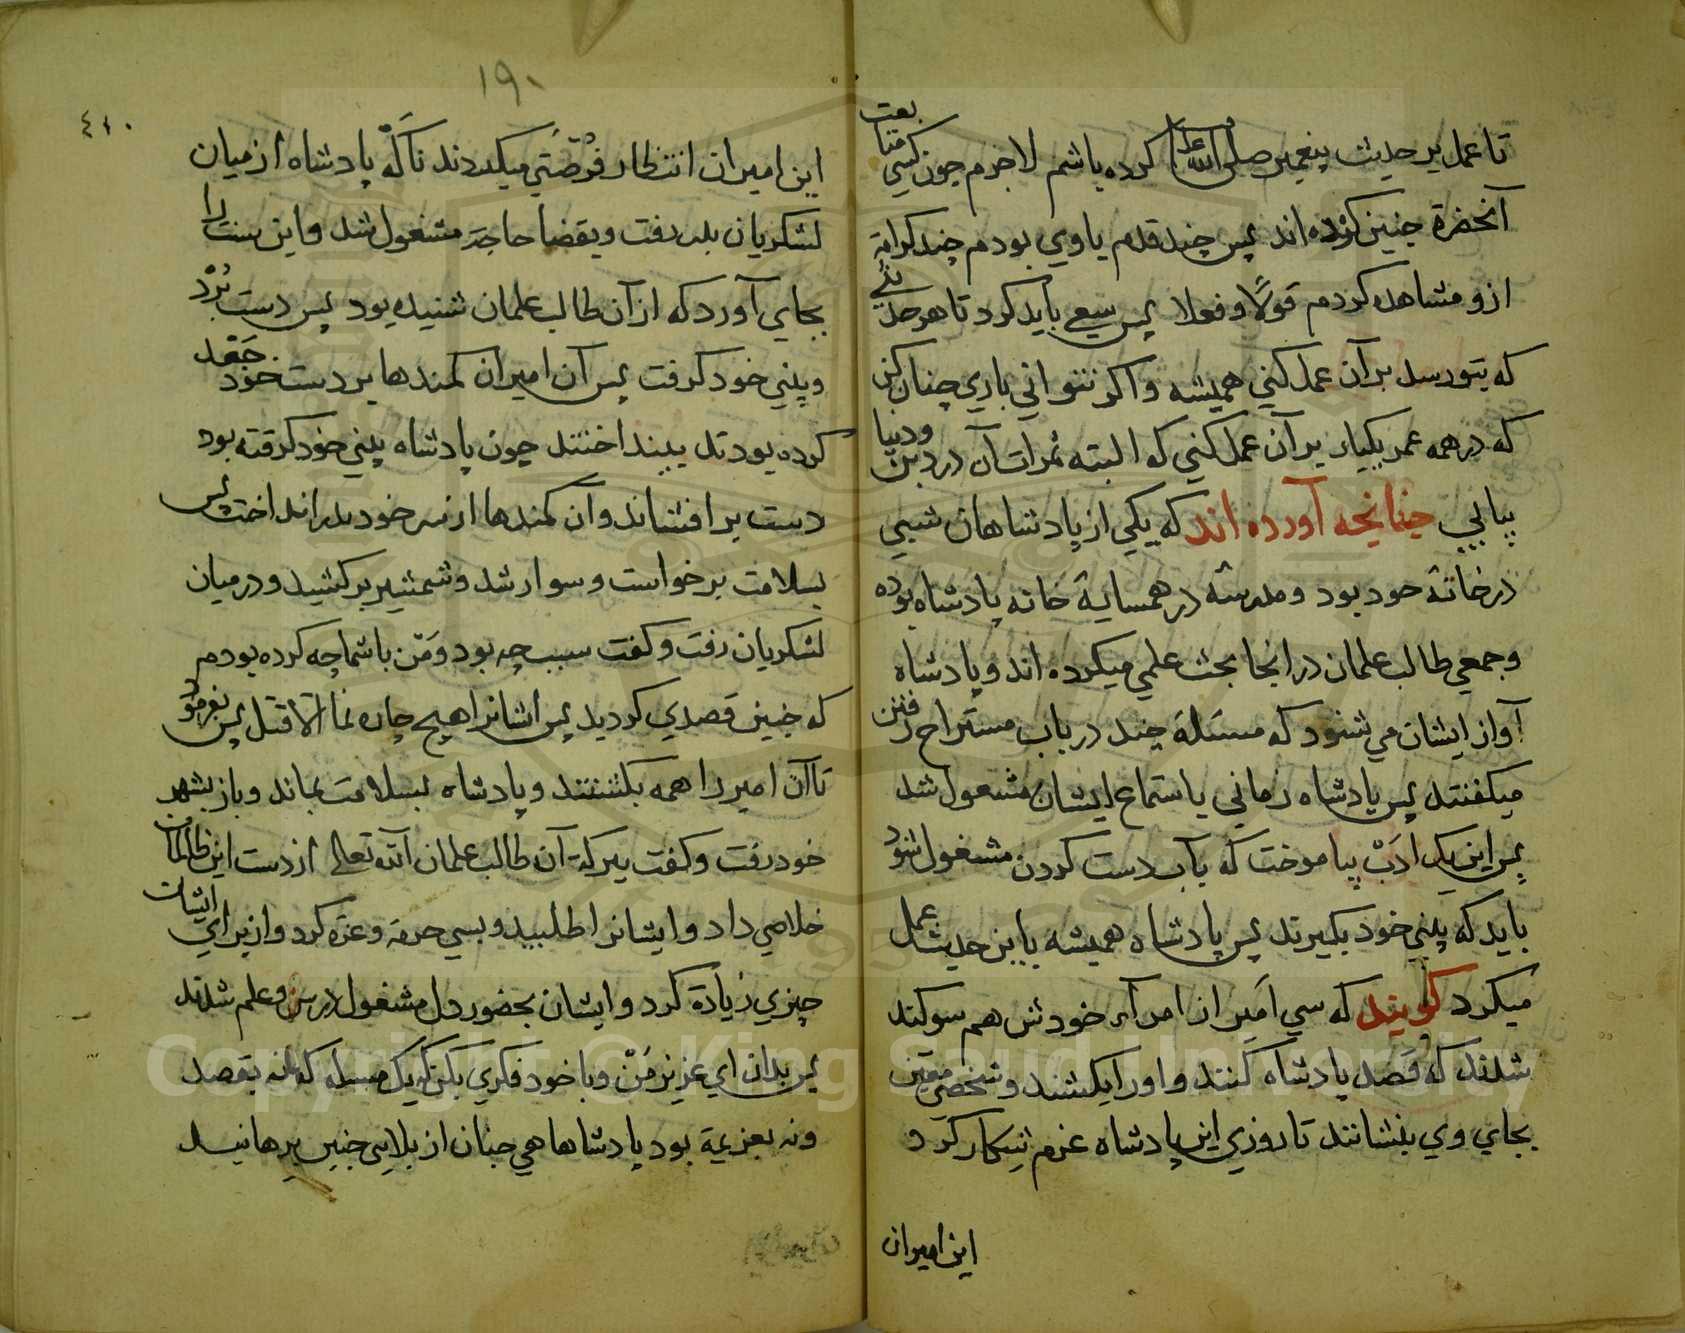 تا عمل بر حدیث پیغمبر صلی الله علیه کرده باشم لاجرم چون کسی متابعت
آنحضرة جنین کرده اند پس چند قدم با وي بودم چند کرامة
ازو مشاهده کردم قولاً وفعلا پس سیعی باید کرد تا هر حدیثی
که بتو رسد بر آن عمل کني همیشه واکر نتواني باري چنان کن
که در همه عمر یکبار بر آن عمل کني که البته ثمرات آن در دین ودنیا
بیابي چنانجه آورده اند که یکي از پادشاهان شبي
در خانهٔ خود بود ومدرسهٔ در همسایهٔ خانه پادشاه بوده
وجمعي طالب علمان در انجا بحث علمي میکرده اند وپادشاه
آواز ایشان مي شنود که مسئلهٔ چند در باب مستراح رفتن
میکفتند پس پادشاه زماني باستماع ایشان مشغول شد
پس این یک ادَبْ بیاموخت که بآب دست کردن مشغول شود
باید که بیني خود بکیرند پس پادشاه همیشه باین حدیث عمل
میکرد کویند که سي امیر از امرآء خودش هم سوکند
شدند که قصد پادشاه کنند واورا بکشند وشخصي معین
بجاي وي بنشانند تا روزي این پادشاه عزم شکار کرد و
این امیران
١٩٠
٤١٠
این امیران انتظار فرصتي میکردند ناکه پادشاه از میان
لشکریان بدر رفت وبقضا حاجة مشغول شد واین سنت را
بجاي آورد که از آن طالب علمان شنیده بود پس دست بُرْد
وبیني خود کرفت پس آن امیران کمندها بر دست خود حَعْد
کرده بودند بینداختند چون پادشاه بیني خود کرفته بود
دست بر افشاند وآن کمندها از سر خود بدر انداخت پس
بسلامت برخواست وسوار شد وشمشیر برکشید ودر میان
لشکریان رفت وکفت سبب چه بود ومَن باشما چه کرده بودم
که جنین قصدي کردید پس ایشانرا هیچ چاره نماند الا قتل پس بفرمود
تا آن امیر را همه بکشتند وپادشاه بسلامت بماند وباز بشهر
خود رفت وکفت ببرکة آن طالب علمان الله تعالی از دست این ظالمان
خلاصي داد وایشانرا طلبید وبسي حرمة وعزة کرد واز براي ایشان
چیزي زیادة کرد وایشان بحضور دل مشغول درس وعلم شدند
پس بدان اي عزیز مَنْ وبا خود فکري بکن که یک مسئله که نه بقصد
ونه بعزیمة بود پادشاها هي جنان از بلایي جنین برهانید